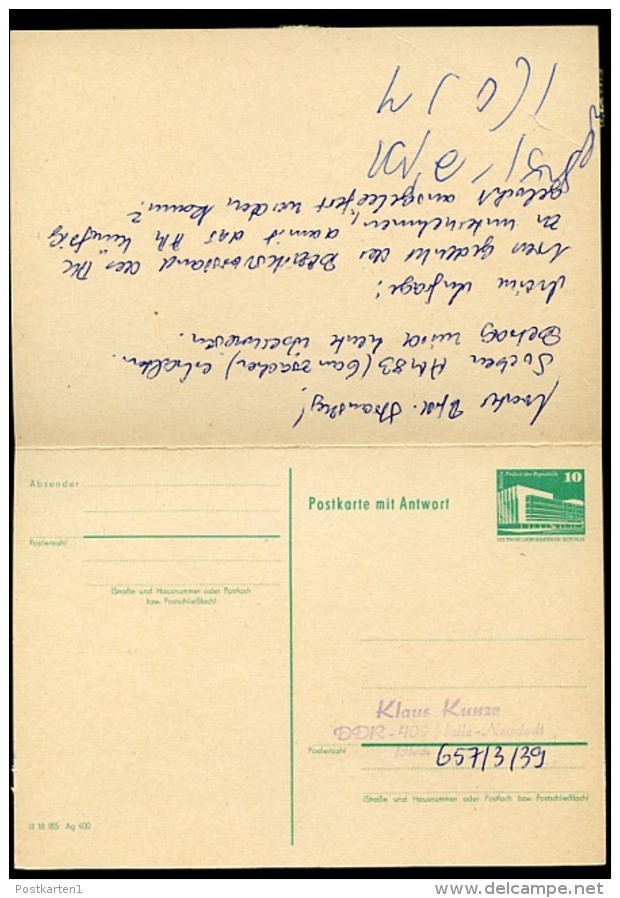 Werter Bfd. Stransky!
Soeben AM83 (6an zSachen) erhalten.
Betrag wird heute überwiesen.
Meine Anfrage:
Was gedenkt der Bezirksvorstand der
zu unternehmen, damit das künftig
gelocht ausgeliefert werden kann?
Absender:
Postleitzahl
(Straße und Hausnummer oder Postfach
bzw. Postschließfach)
Postkarte mit Antwort
Berlin, Palast der Republik
10
DEUTSCHE DEMOKRATISCHE REPUBLIK
Klaus Kunze
DDR-409 Halle-Neustadt
657/3/39
Postleitzahl
(Straße und Hausnummer oder Postfach bzw. Postschließfach)
III 18 185 Ag 400
Postkarten1
www.delcampe.net